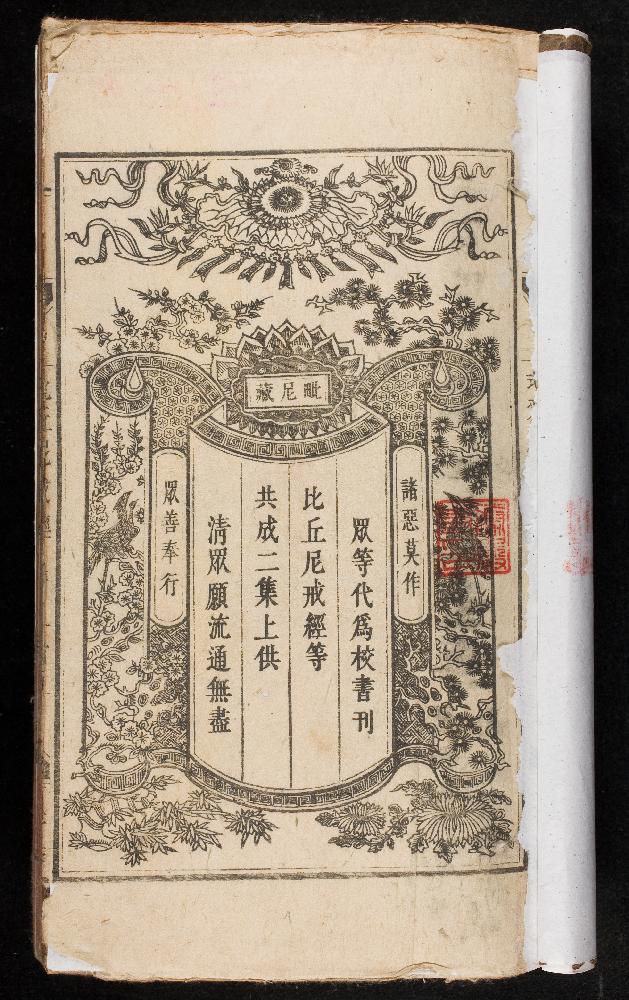 毗尼藏
諸惡莫作
眾等代爲校書刊
比丘尼戒經等
共成二集上供
清眾願流通無盡
眾善奉行